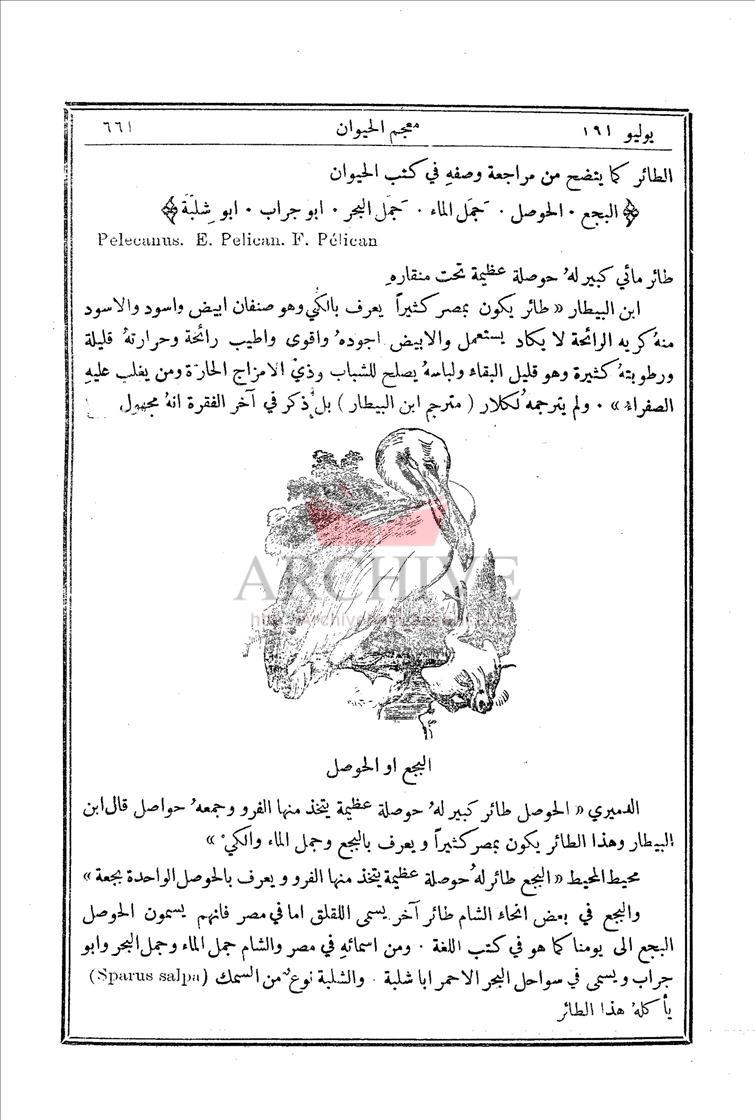 يوليو ١٩١ معجم الحيوان ٦٦١
الطائر كما يتضح من مراجعة وصفهِ في كتب الحيوان
﴿ البجع . الحوصل . جَمَل الماء . جَمَل البحر . ابو جراب . ابو شلبَّة ﴾
Pelecanus. E. Pelican. F. Pélican
طائر مائي كبير لهُ حوصلة عظيمة تحت منقارهِ
ابن البيطار « طائر يكون بمصر كثيراً يعرف بالكي وهو صنفان ابيض واسود والاسود
منهُ كريه الرائحة لا يكاد يستعمل والابيض اجودهُ واقوى واطيب رائحة وحرارتهُ قليلة
ورطوبتهُ كثيرة وهو قليل البقاء ولباسهُ يصلح للشباب وذي الامزاج الحارّة ومن يغلب عليهِ
الصفراءُ » . ولم يترجمهُ لكلار ( مترجم ابن البيطار ) بل ذكر في آخر الفقرة انهُ مجهول
ARCHIVE
البجع او الحوصل
الدميري « الحوصل طائر كبير لهُ حوصلة عظيمة يتخذ منها الفرو وجمعهُ حواصل قال ابن
البيطار وهذا الطائر يكون بمصر كثيراً ويعرف بالبجع وجمل الماء والكيّ »
محيط المحيط « البجع طائر لهُ حوصلة عظيمة يتخذ منها الفرو ويعرف بالحوصل الواحدة بجعة »
والبجع في بعض انحاء الشام طائر آخر يسمى اللقلق اما في مصر فانهم يسمون الحوصل
البجع الى يومنا كما هو في كتب اللغة . ومن اسمائهِ في مصر والشام جمل الماء وجمل البحر وابو
جراب ويسمى في سواحل البحر الاحمر ابا شلبة . والشلبة نوع من السمك (Sparus salpa)
يأكلهُ هذا الطائر